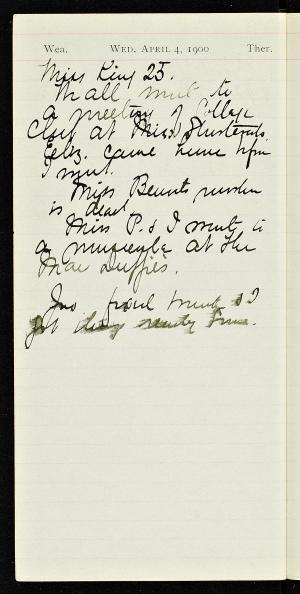 Wea. WED. APRIL 4, 1900 Ther.
Miss King 25.
M all went to
a meeting of College
Club at Miss
Eliz. came home after
I went.
Miss Bennets
is dead
Miss P. & I went to
a musicale at the
MacDuffies.
Jno. &
got